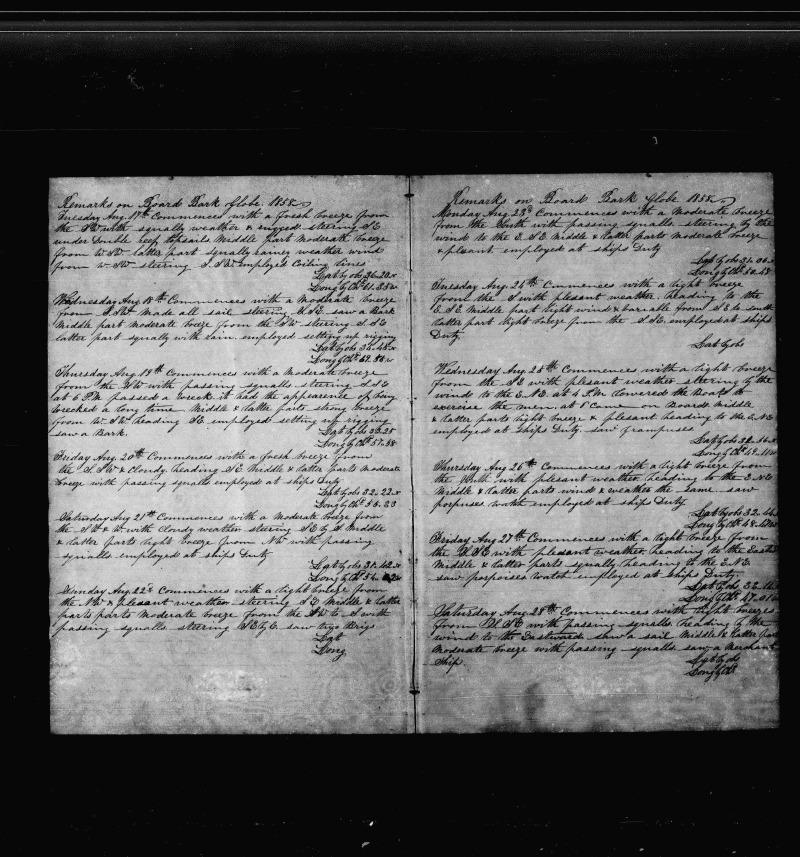 Remarks on Board Bark Globe 1858
Tuesday Aug. 17th Commences with a fresh breeze from
the SW with squally weather & rugged steering SE
under Double reef topsails Middle part Moderate breeze
from W SW latter part squally rainey weather wind
from W SW steering S SW employed Coiling lines
Lat by obs 36.20
Long by Chr 61.35
Wednesday Aug 18th Commences with a Moderate breeze
from S SW Made all sail steering S SE saw a Bark
Middle part moderate breeze from the SW steering S SE
latter part squally with rain. employed setting up rigging
Lat by obs
Long by Chr
Thursday Aug. 19th Commences with a Moderate breeze
from the SW with passing squalls steering S SE
at 6 P.M. passed a wreck it had the appearence of being
wrecked a long time Middle & latter parts strong breeze
from W SW heading SE employed setting up rigging
saw a Bark.
Lat by obs
Long by Chr 57.58
Friday Aug 20th Commences with a fresh breeze from
the S SW & Cloudy heading SE Middle & latter parts moderate
breeze with passing squalls employed at ships Duty
Lat by obs 32.22
Long by Chr 55.23
Saturday Aug 21st Commences with a Moderate breeze from
the SW & W. with cloudy weather steering SE by S Middle
& latter parts light breeze from NW with passing
squalls employed at ships Duty
Lat by obs 31.42
Long by Chr 54.
Sunday Aug. 22d Commences with a light breeze from
the NW & pleasant weather steering SE Middle & latter
parts Moderate breeze from the SW to S with
passing squalls steering SE by E saw two Brigs
Lat
Long
Remarks on Board Bark Globe 1858
Monday Aug 23d Commences with a Moderate breeze
from the South with passing squalls steering by the
wind to the E SE Middle & latter parts moderate breeze
& pleasent employed at ships Duty
Lat by obs 31.36
Long by Chr 50.48
Tuesday Aug 24th Commences with a light breeze
from the S with pleasent weather heading to the
E SE Middle part light wind & variable from SE to south
latter part light breeze from the S SE. employed at ships
Duty
Lat by obs
Wednesday Aug 25th Commences with a light breeze
from the SE with pleasent weather steering by the
wind to the E NE. at 4 P.M. lowered the Boats to
exercise the men. at 5 Came on Board Middle
& latter parts light breeze & pleasent heading to the E NE
employed at ships Duty. saw grampuses
Lat by obs 32.16
Long by Chr 49.
Thursday Aug 26th Commences with a light breeze from
the South with pleasent weather heading to the E NE
Middle & latter parts wind & weather the same saw
porpuses watch employed at ships Duty
Lat by obs 32.44
Long by Chr 48.
Friday Aug 27th Commences with a light breeze from
the S SE with pleasent weather heading to the Eastd
Middle & latter parts squally heading to the E NE
saw porpoises watch employed at ships Duty
Lat by obs 32.
Long by Chr 47.01
Saturday Aug. 28th Commences with light breezes
from S SE with passing squalls heading by the
wind to the Eastward saw a sail Middle & latter part
Moderate breeze with passing squalls saw a Merchant
Ship.
Lat by obs
Long by Chr